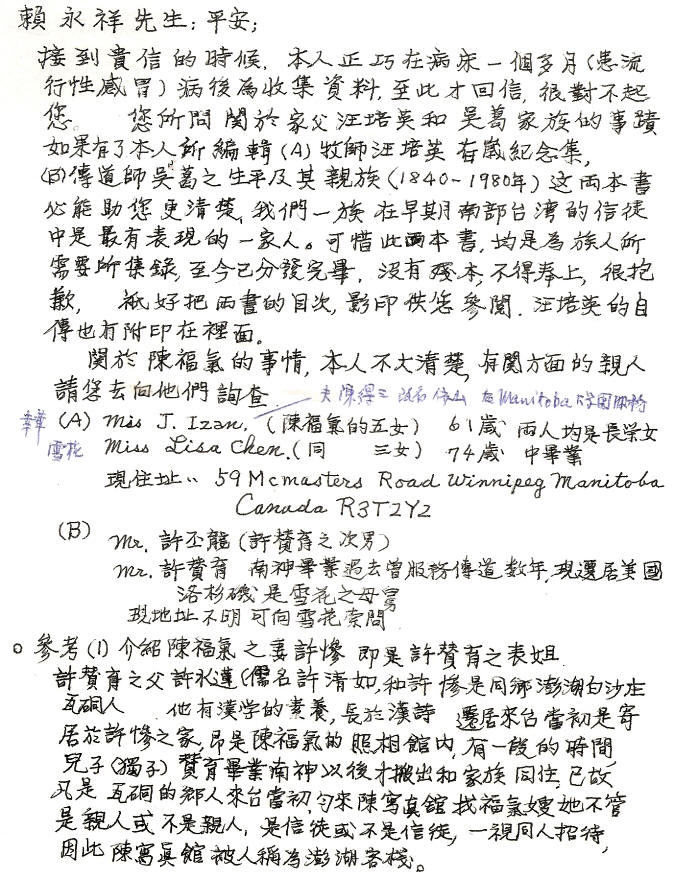 賴永祥先生：平安；
接到貴信的時候，本人正巧在病床一個多月（患流
行性感冒）病後為收集資料，至此才回信，很對不起
您。 您所問関於家父汪培英和吳葛家族的事蹟
如果有了本人所編輯（A）牧師汪培英百歲紀念集，
(B)傳道師吳葛之生平及其親族（1840~1980年）这両本書
必能助您更清楚，我們一族在早期南部台湾的信徒
中是最有表現的一家人。可惜此両本書，均是為族人所
需要所集錄，至今已分發完畢，沒有殘本，不得奉上，很抱
歉， 祇好把両書的目次，影印供您參閱．汪培英的自
傳也有附印在裡面。
関於陳福氣的事情，本人不大清楚，有関方面的親人
請您去向他們詢查
夫陳得三 在Manitoba大学
(A) Miss J. Izan. （陳福氣的五女） 61歲 両人均是長榮女
雪花 Miss Lisa Chen. （同 三女） 74歲 中畢業
現住址：59 Mcmasters Road Winnipeg Manitoba
Canada R3T2Y2
(B) Mr. 許丕龍（許贊育之次男）
Mr. 許贊育 南神畢業過去曾服務傳道数年，現遷居美國
洛杉磯是雪花之母舅
現地址不明可向雪花索問
○ 參考(1) 介紹陳福氣之妻許慘 即是許贊育之表姐
許贊育之父許水蓮（儒名許清如，和許慘是同鄉澎湖白沙庄
瓦硐人 他有漢学的素養，長於漢詩 遷居來台當初是寄
居於許慘之家，即是陳福氣的照相館內，有一段的時間，
兒子（獨子）贊育畢業南神以後才搬出和家族同住，已故
凡是瓦硐的鄉人來台當初，勻來陳寫真館找福氣嫂她不管
是親人或不是親人，是信徒或不是信徒，一視同人招待，
因此陳寫真館被人稱為澎湖客棧。